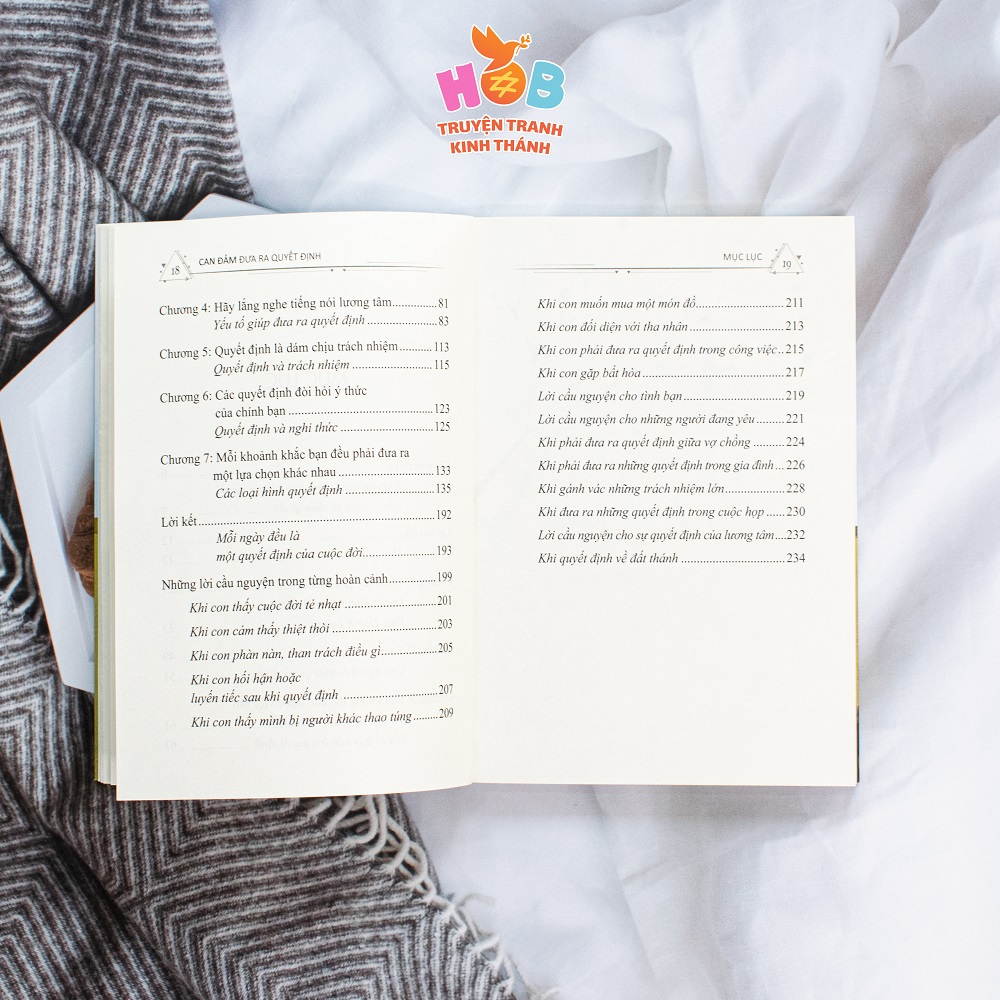 HOB
TRUYỆN TRANH
KINH THÁNH
18 CAN ĐẢM ĐƯA RA QUYẾT ĐỊNH
Chương 4: Hãy lắng nghe tiếng nói lương tâm...............81
Yếu tố giúp đưa ra quyết định......................83
Chương 5: Quyết định là dám chịu trách nhiệm...........113
Quyết định và trách nhiệm..........................115
Chương 6: Các quyết định đòi hỏi ý thức
của chính bạn............................................123
Quyết định và nghi thức.............................125
Chương 7: Mỗi khoảnh khắc bạn đều phải đưa ra
một lựa chọn khác nhau.............................133
Các loại hình quyết định............................135
Lời kết.......................................................................192
Mỗi ngày đều là
một quyết định của cuộc đời......................193
Những lời cầu nguyện trong từng hoàn cảnh...............199
Khi con thấy cuộc đời tẻ nhạt................................201
Khi con cảm thấy thiệt thòi...................................203
Khi con phàn nàn, than trách điều gì.....................205
Khi con hối hận hoặc
luyến tiếc sau khi quyết định.................................207
Khi con thấy mình bị người khác thao túng.........209
MỤC LỤC 19
Khi con muốn mua một món đồ...........................211
Khi con đối diện với tha nhân..............................213
Khi con phải đưa ra quyết định trong công việc..215
Khi con gặp bất hòa.............................................217
Lời cầu nguyện cho tình bạn................................219
Lời cầu nguyện cho những người đang yêu.........221
Khi phải đưa ra quyết định giữa vợ chồng..........224
Khi phải đưa ra những quyết định trong gia đình..226
Khi gánh vác những trách nhiệm lớn..................228
Khi đưa ra những quyết định trong cuộc họp......230
Lời cầu nguyện cho sự quyết định của lương tâm...232
Khi quyết định về đất thánh.................................234